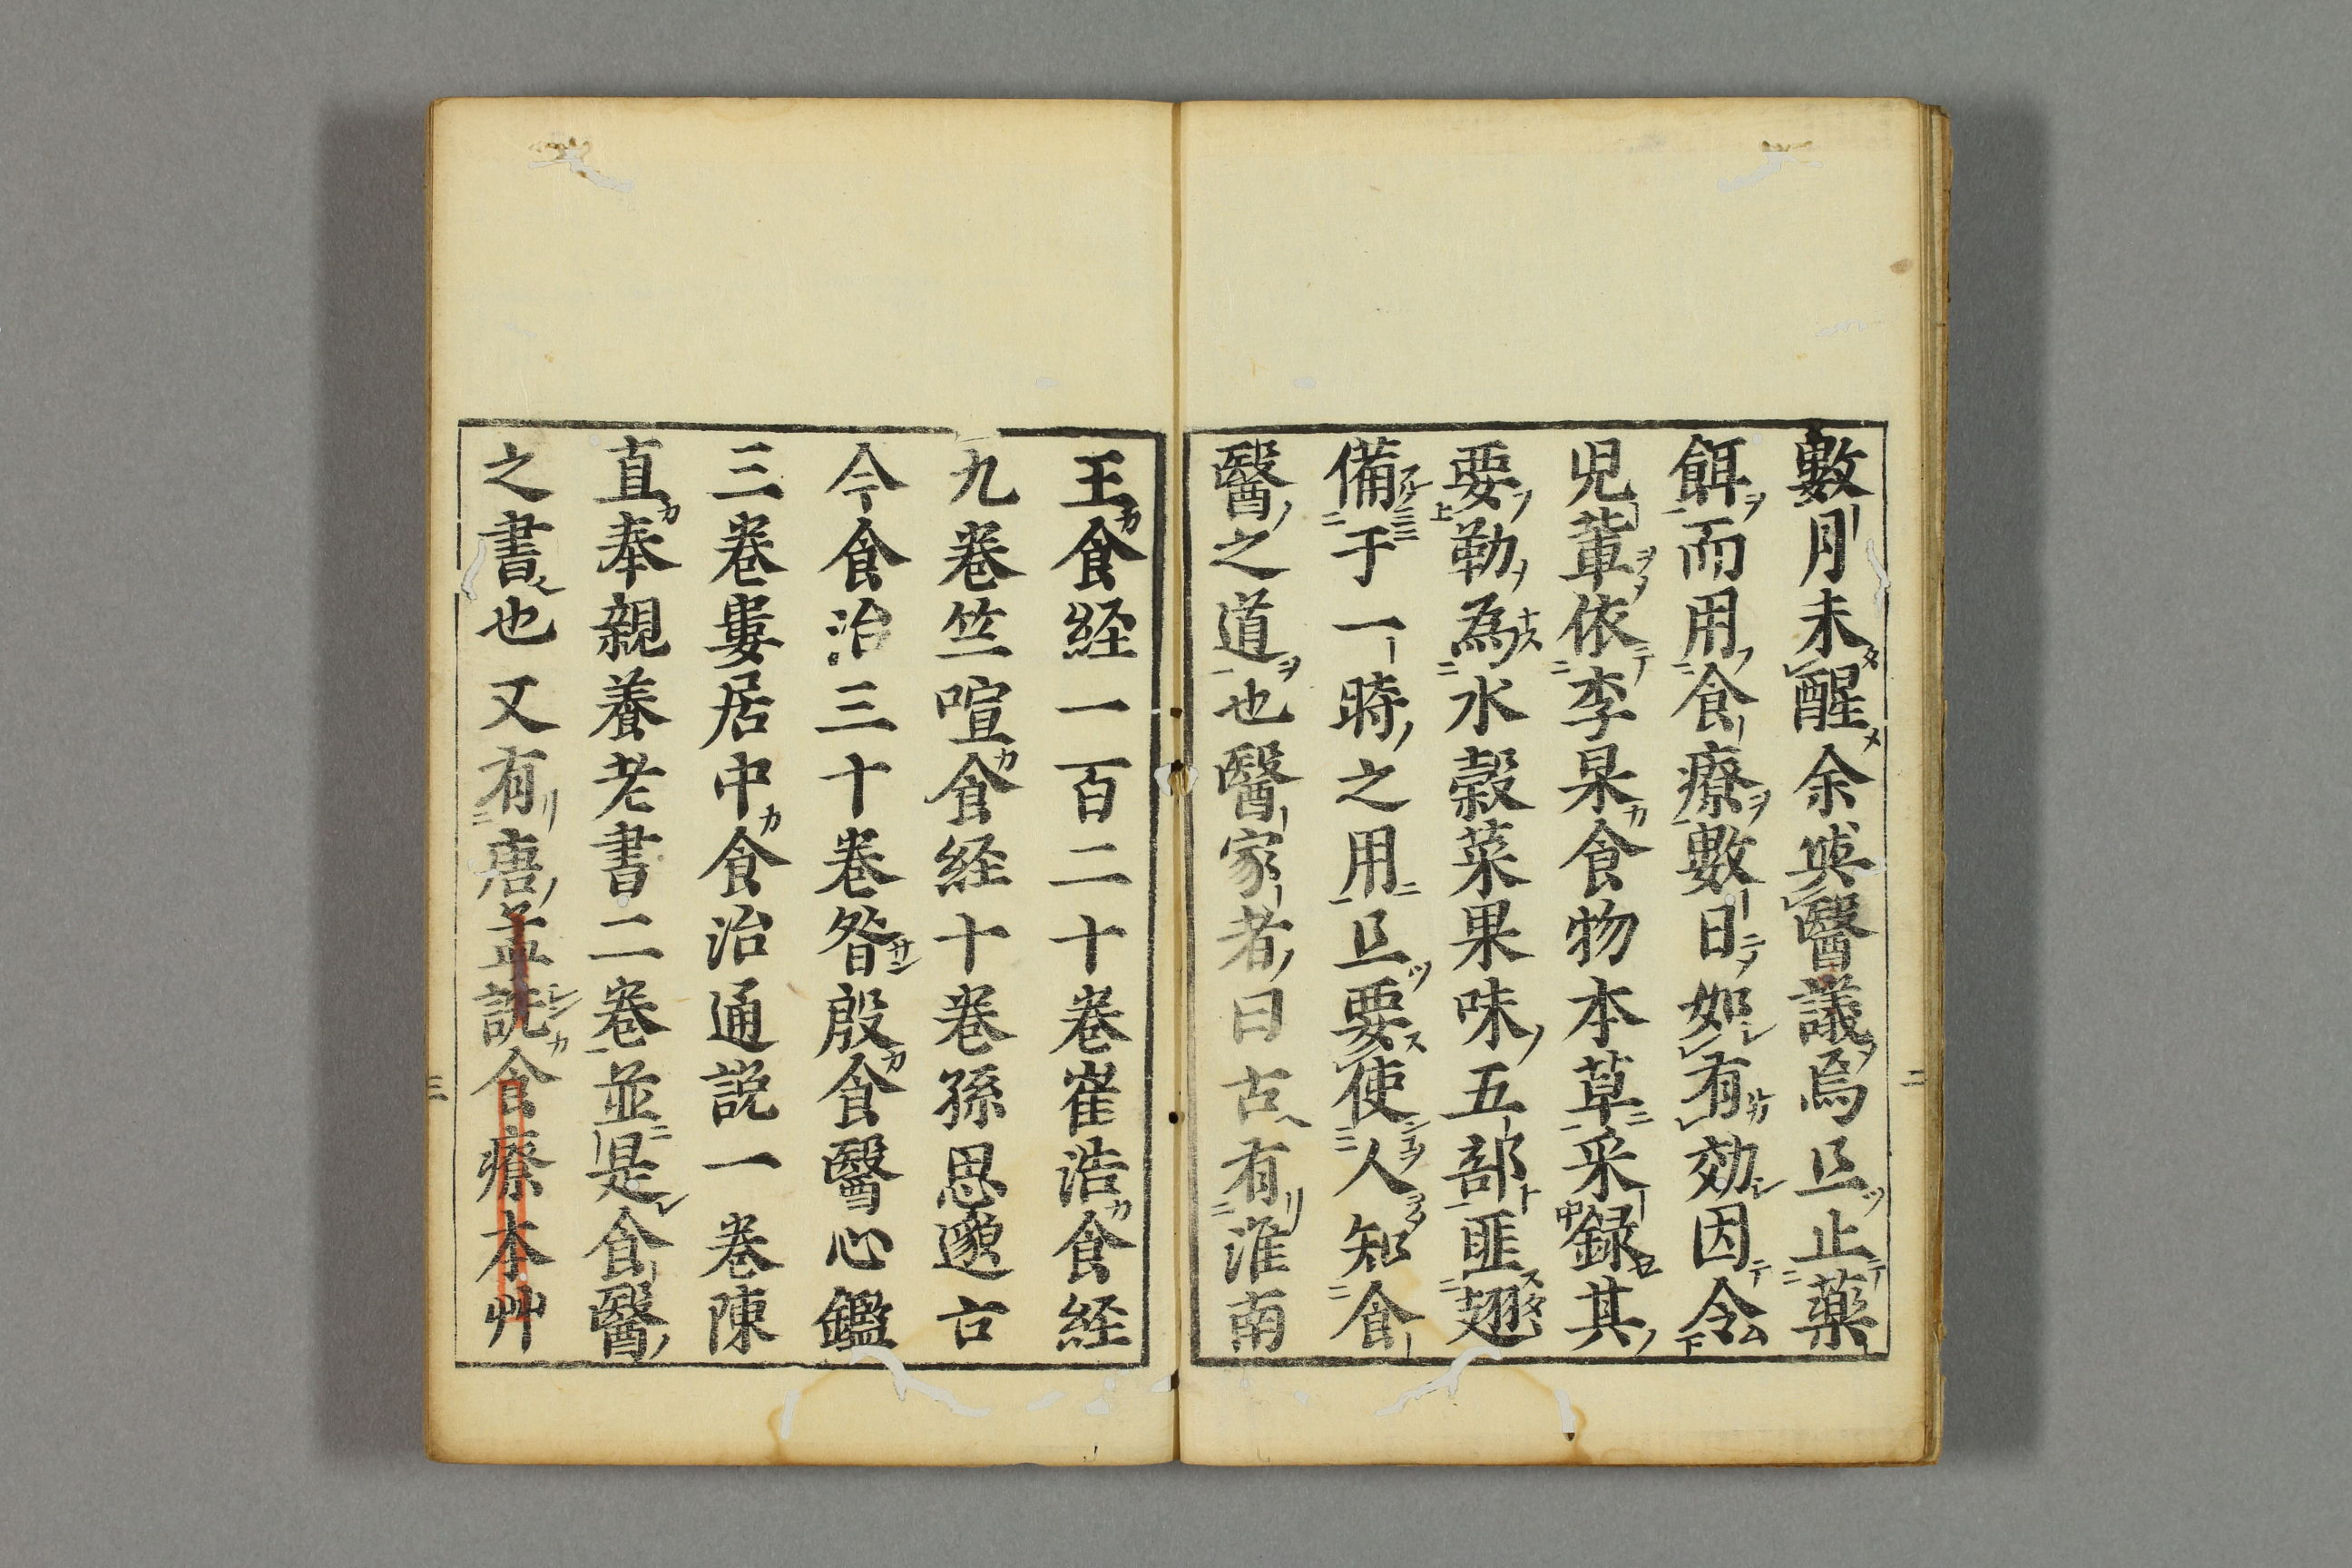 數月未醒余與醫議焉且止藥
餌而用食療數日如有効因令
児輩依李杲食物本草采録其
要勒為水穀菜果味五部匪翅
備于一時之用且要使人知食
醫之道也醫家者曰古有淮南
王食経一百二十巻崔浩食経
九巻竺暄食経十巻孫思邈古
今食治三十巻昝殷食醫心鑑
三巻婁居中食治通説一巻陳
直奉親養老書二巻並是食醫
之書也又有唐孟詵食療本艸